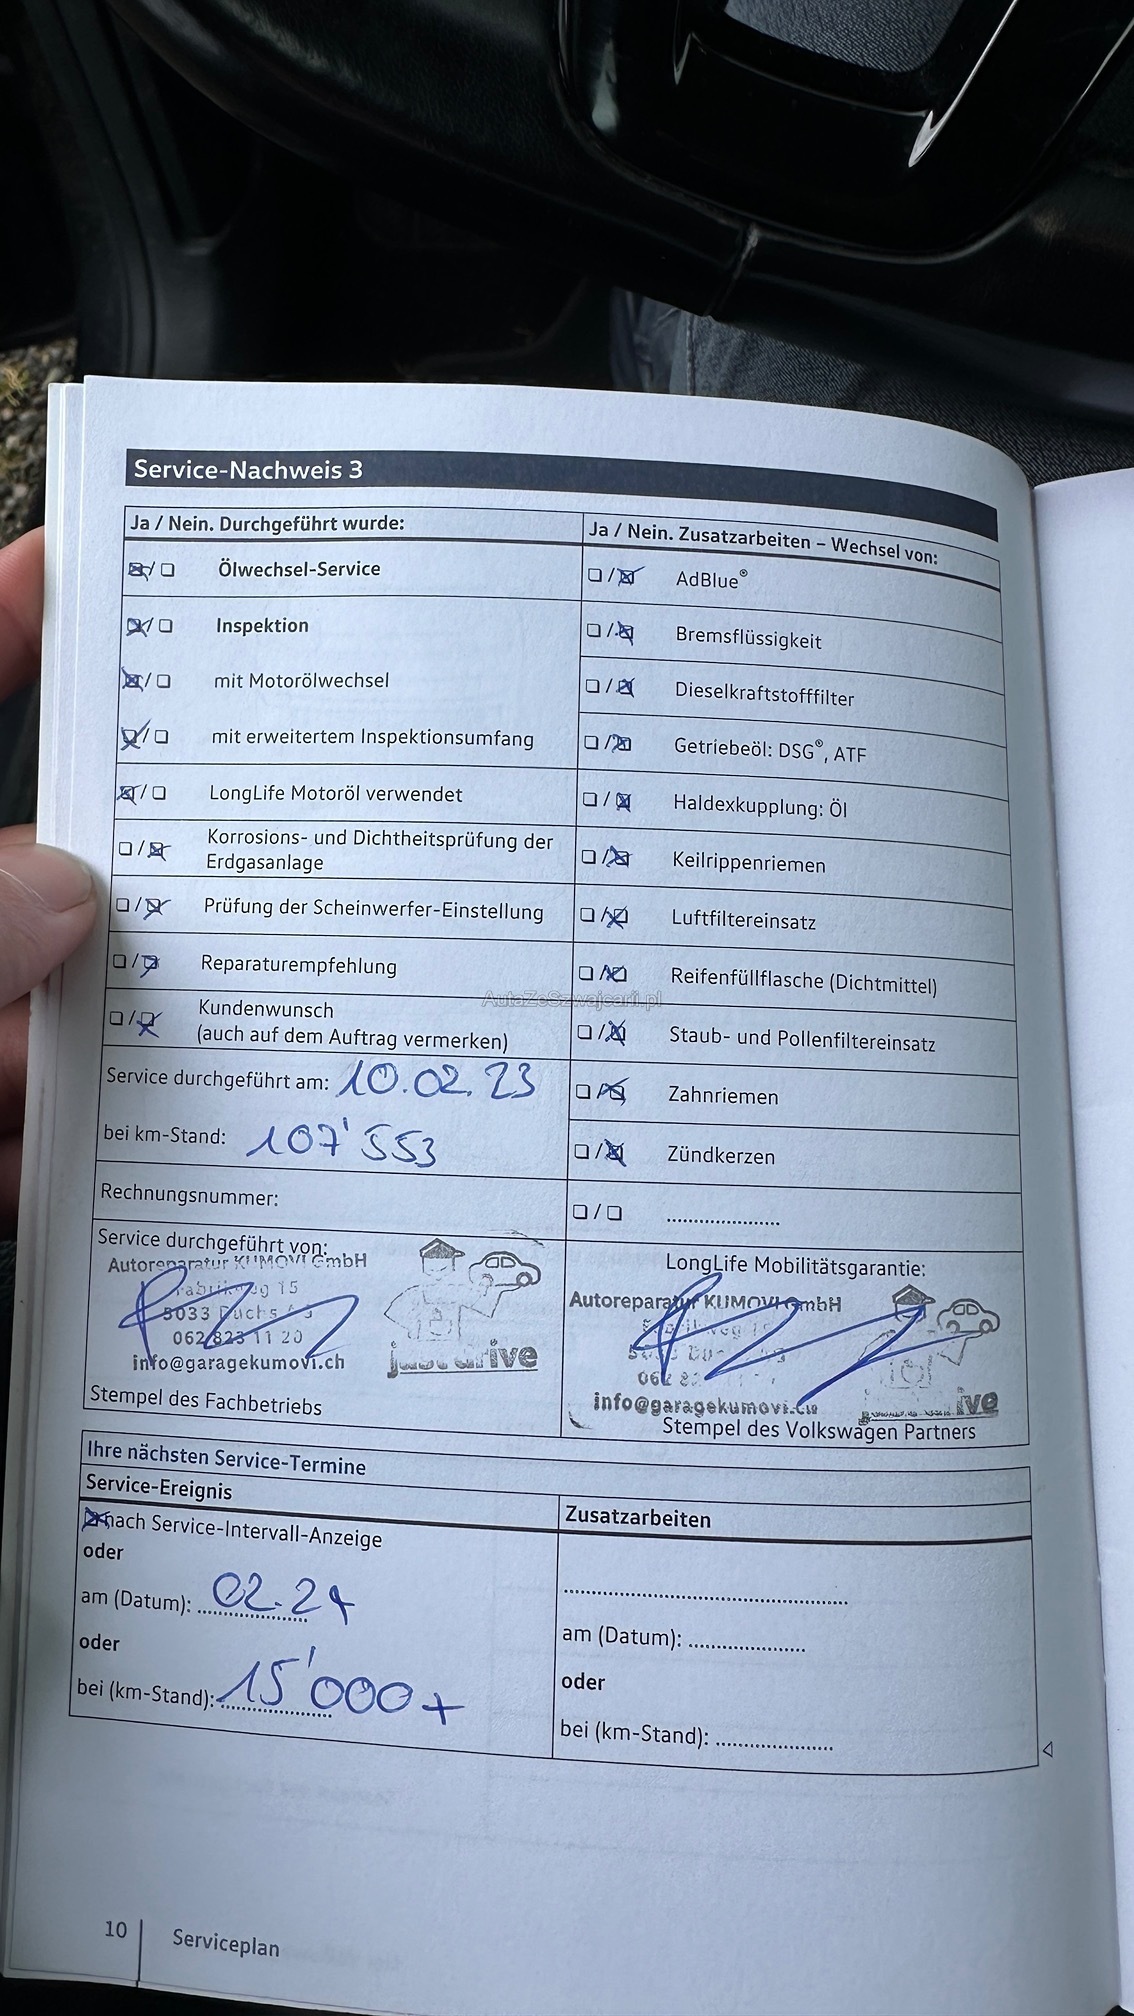 Service-Nachweis 3
Ja / Nein. Durchgeführt wurde:
☒/☐ Ölwechsel-Service
☒/☐ Inspektion
☒/☐ mit Motorölwechsel
☒/☐ mit erweitertem Inspektionsumfang
☒/☐ LongLife Motoröl verwendet
☐/☒ Korrosions- und Dichtheitsprüfung der
Erdgasanlage
☐/☒ Prüfung der Scheinwerfer-Einstellung
☐/☒ Reparaturempfehlung
☐/☒ Kundenwunsch
(auch auf dem Auftrag vermerken)
Service durchgeführt am: 10.02.23
bei km-Stand: 107'553
Rechnungsnummer:
Service durchgeführt von:
Autoreparatur KUMOVI GmbH
Fabrikweg 15
5033 Buchs AG
062 823 11 20
info@garagekumovi.ch
just drive
Stempel des Fachbetriebs
Ja / Nein. Zusatzarbeiten – Wechsel von:
☐/☒ AdBlue®
☐/☒ Bremsflüssigkeit
☐/☒ Dieselkraftstofffilter
☐/☒ Getriebeöl: DSG®, ATF
☐/☒ Haldexkupplung: Öl
☐/☒ Keilrippenriemen
☐/☒ Luftfiltereinsatz
☐/☒ Reifenfüllflasche (Dichtmittel)
☐/☒ Staub- und Pollenfiltereinsatz
☐/☒ Zahnriemen
☐/☒ Zündkerzen
☐/☐ .....................
LongLife Mobilitätsgarantie:
Autoreparatur KUMOVI GmbH
Fabrikweg
062
info@garagekumovi.ch
Stempel des Volkswagen Partners
Ihre nächsten Service-Termine
Service-Ereignis
☒ nach Service-Intervall-Anzeige
oder
am (Datum): 02.24
oder
bei (km-Stand): 15'000+
Zusatzarbeiten
.....................
am (Datum): .....................
oder
bei (km-Stand): .....................
10 Serviceplan
AutaZeSzwajcarii.pl